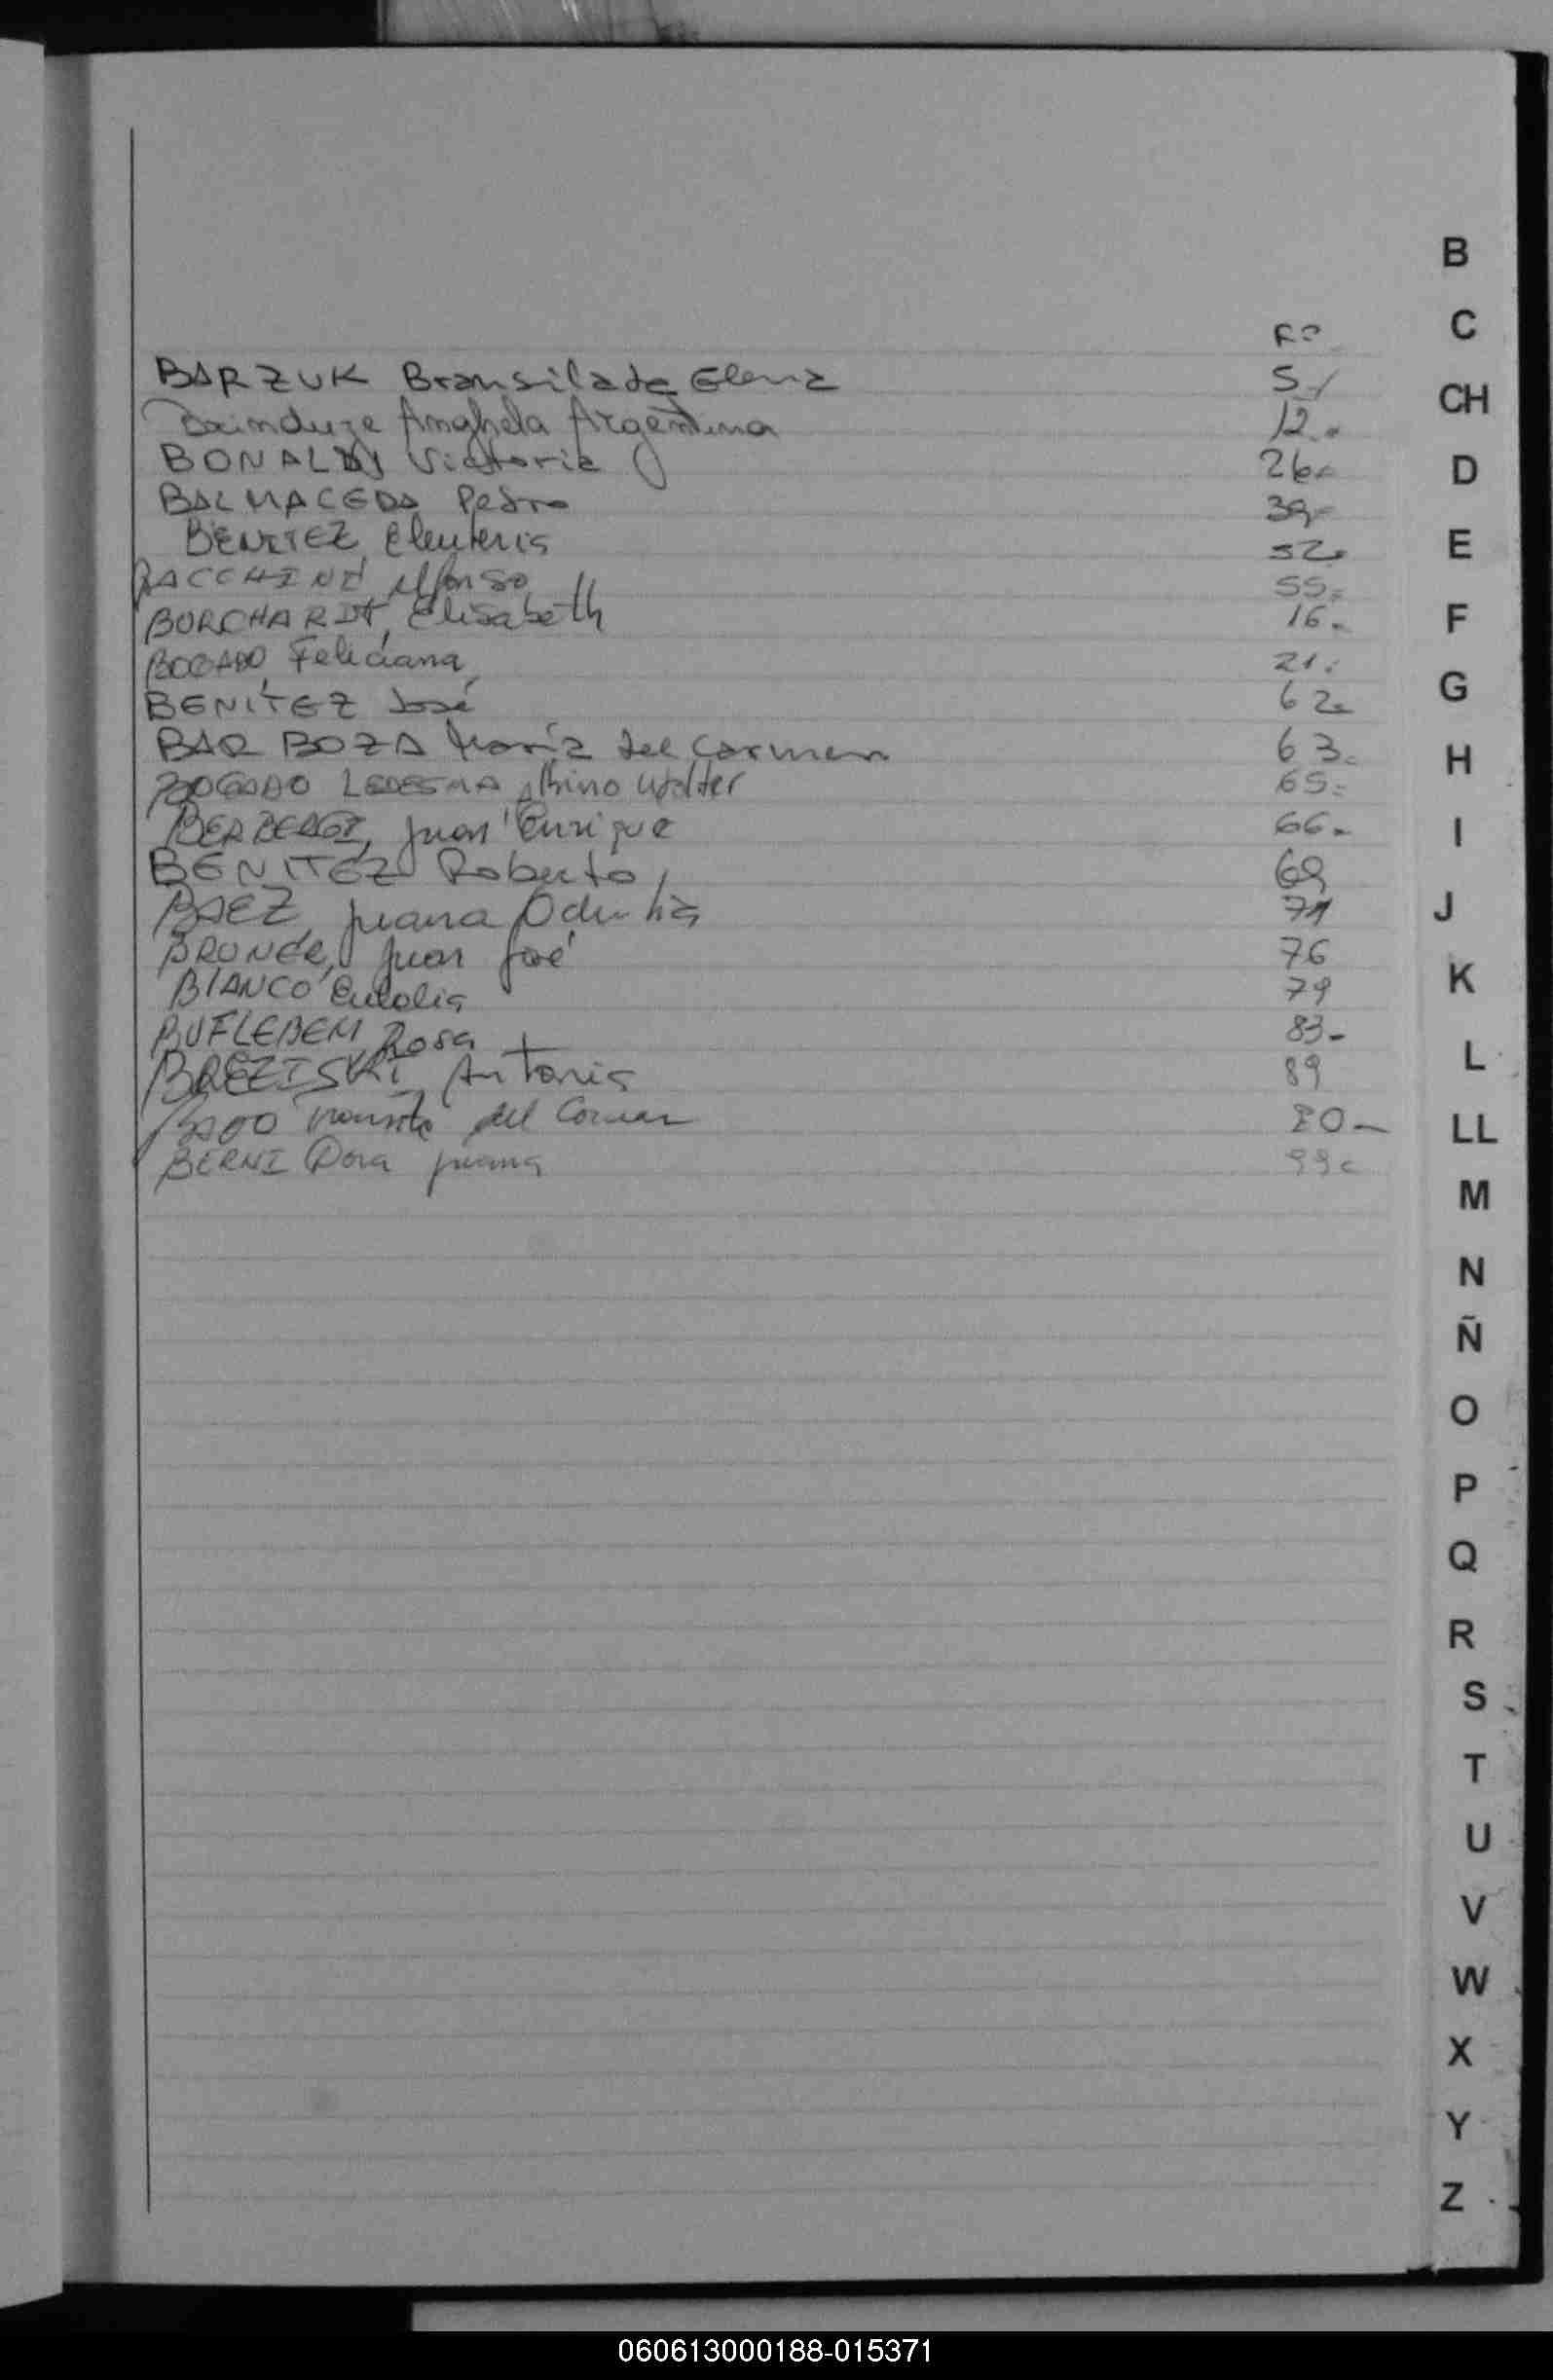 Fº
BARZUK Bransilada Elena 5-/
Brinduze Anghela Argentina 12.-
BONALDI Victoria 26-
BALMACEDA Pedro 39-
BENITEZ, Eleuteria 52-
BACCHINI Alfonso 55-
BURCHARDT, Elisabeth 16-
BOGADO, Feliciana 21-
BENITEZ José 62-
BARBOZA María del Carmen 63-
BOGADO LEDESMA Albino Walter 65-
BERBERGI, Juan Enrique 66-
BENITEZ Roberto 69
BAEZ, Juana 71
BRUNER, Juan José 76
BIANCO Eulolia 79
BUFLEBEM Rosa 83-
BREZISKI, Antonia 89
del Carmen 80-
BERNI Dora Juana 99-
B
C
CH
D
E
F
G
H
I
J
K
L
LL
M
N
Ñ
O
P
Q
R
S
T
U
V
W
X
Y
Z
060613000188-015371